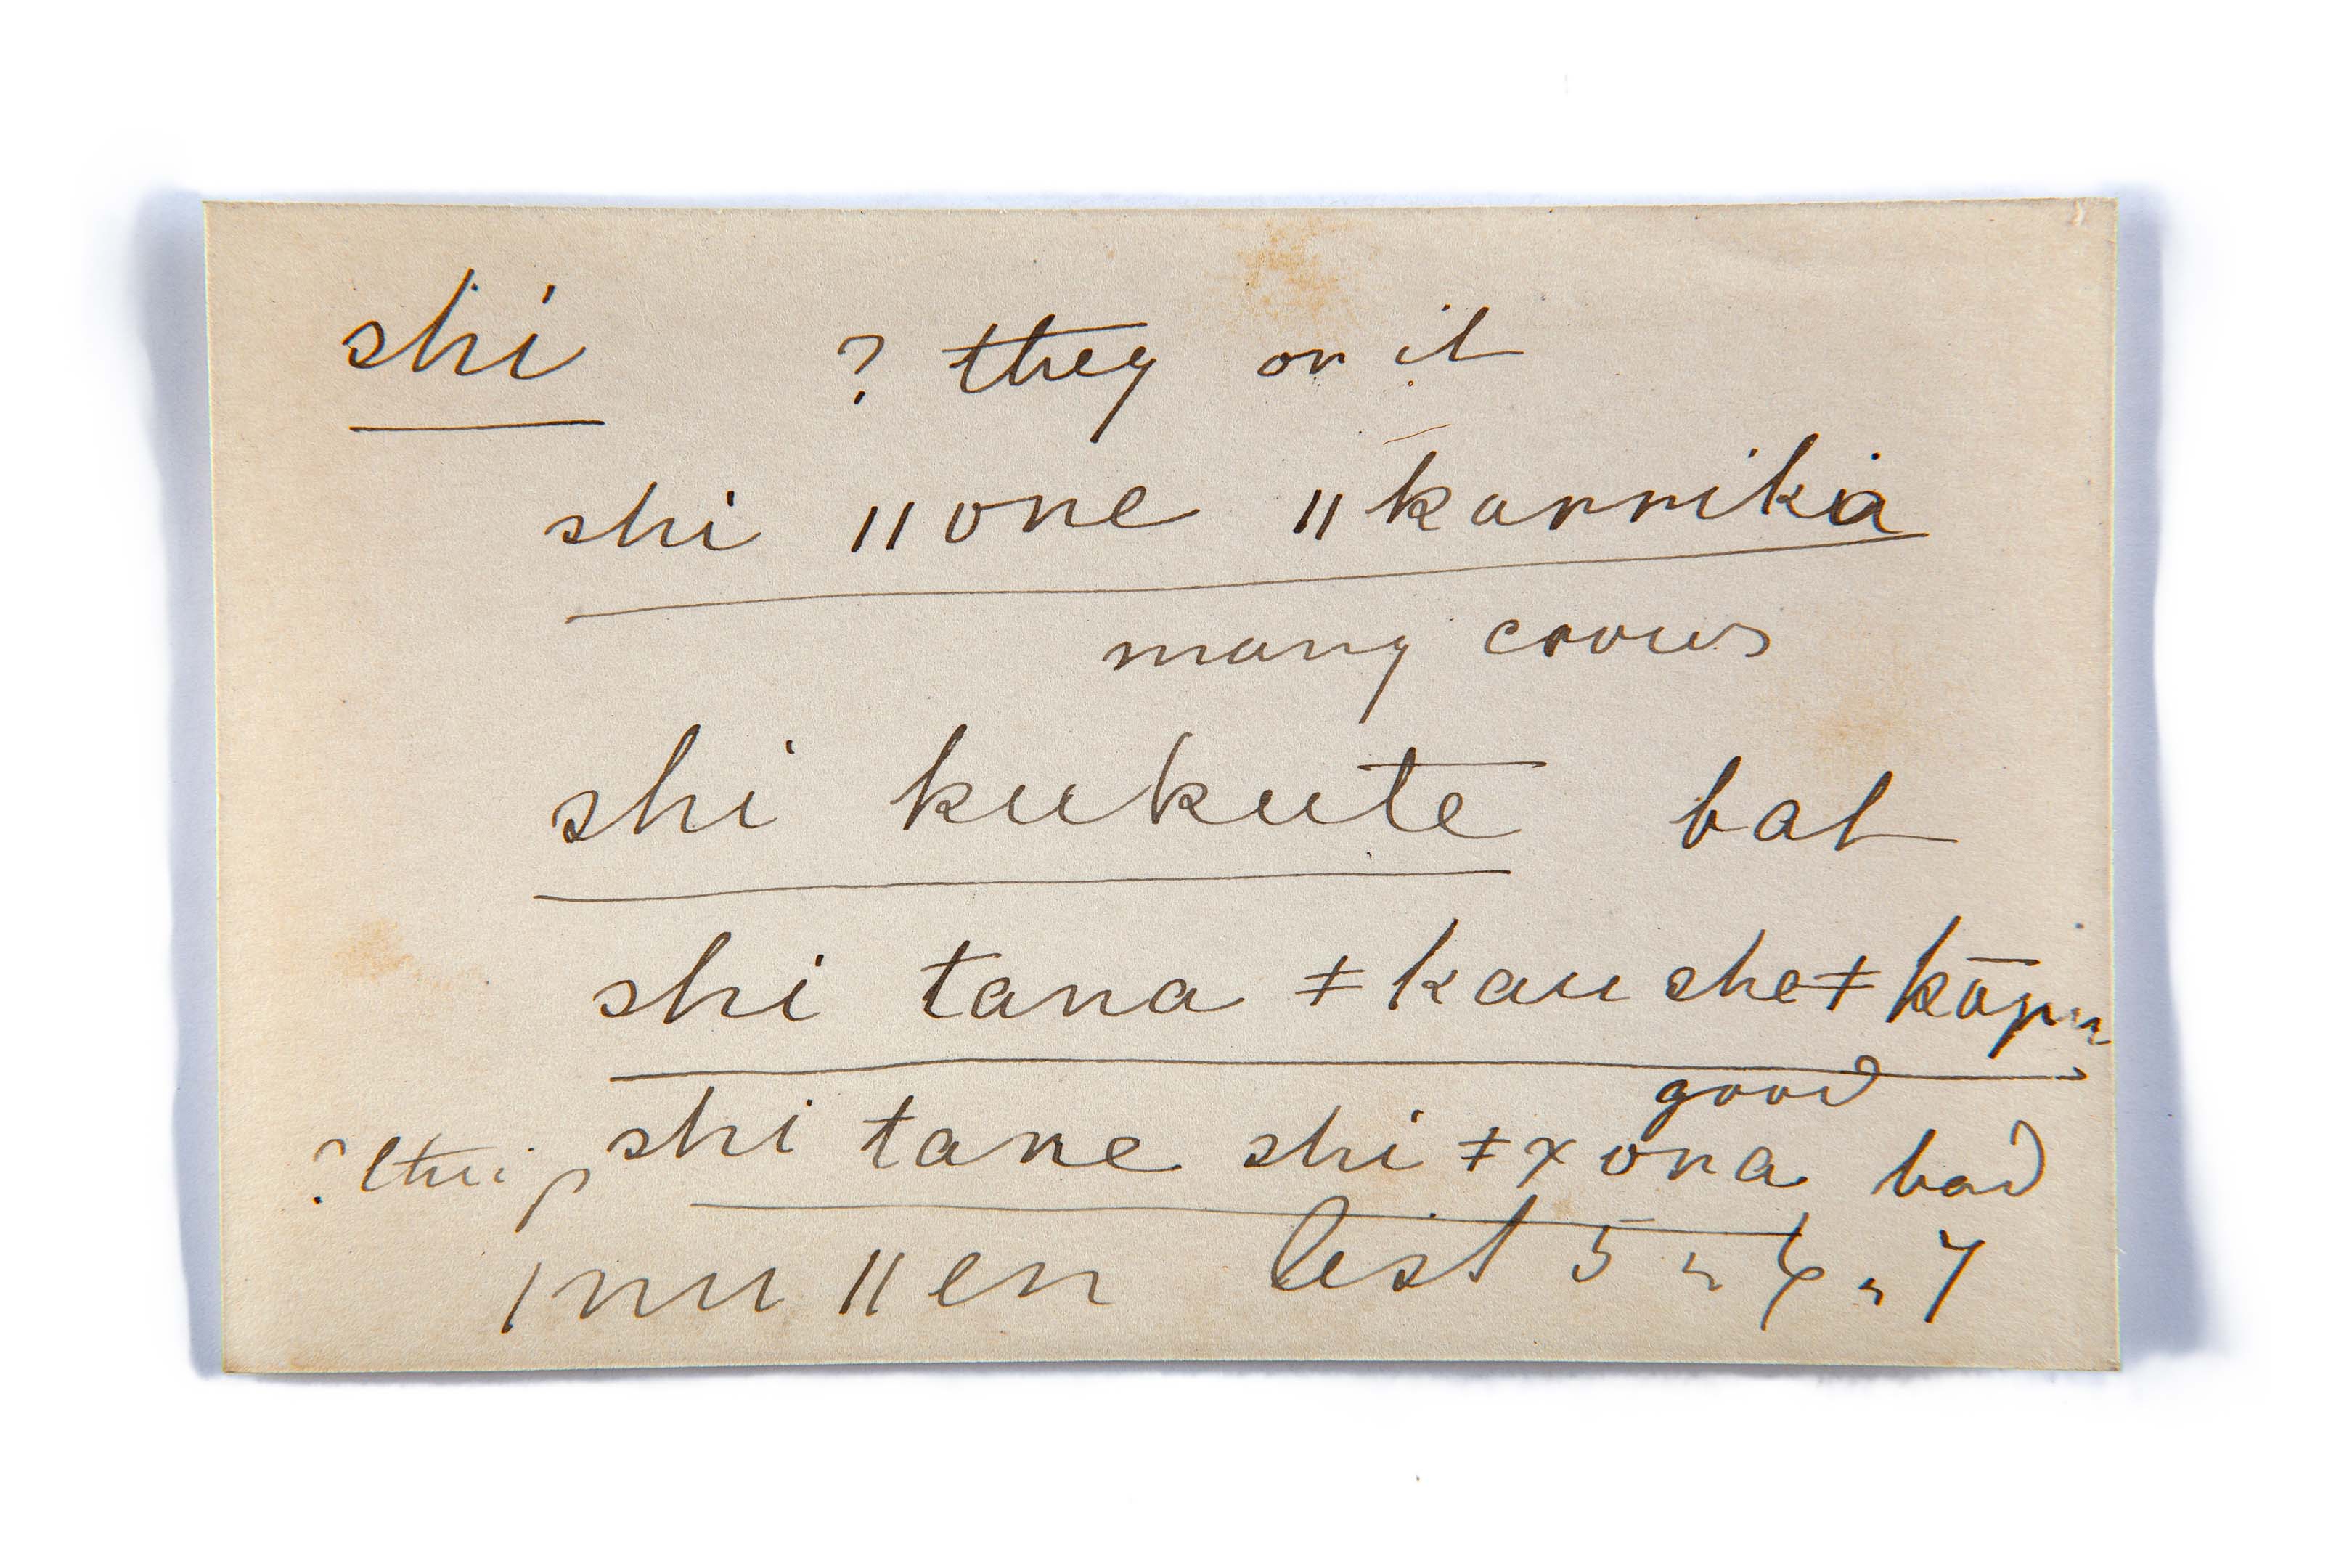 shi ? they or it
shi ǁone ǁkarrika
many crows
shi kukute bat
shi tana ǂkau she ǂkōpu
good
shi tane shi ǂxona bad
ǀnu ǁen list 5 " 6 " 7